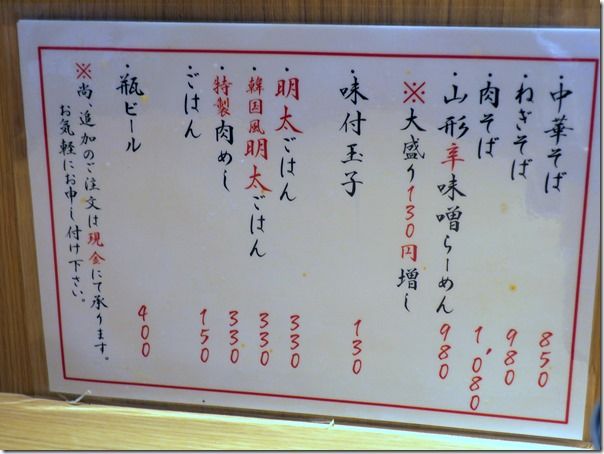 ・中華そば 850
・ねぎそば 980
・肉そば 1,080
・山形辛味噌らーめん 980
※大盛り130円増し
・味付玉子 130
・明太ごはん 330
・韓国風明太ごはん 330
・特製肉めし 330
・ごはん 150
・瓶ビール 400
※尚、追加のご注文は現金にて承ります。
お気軽にお申し付け下さい。